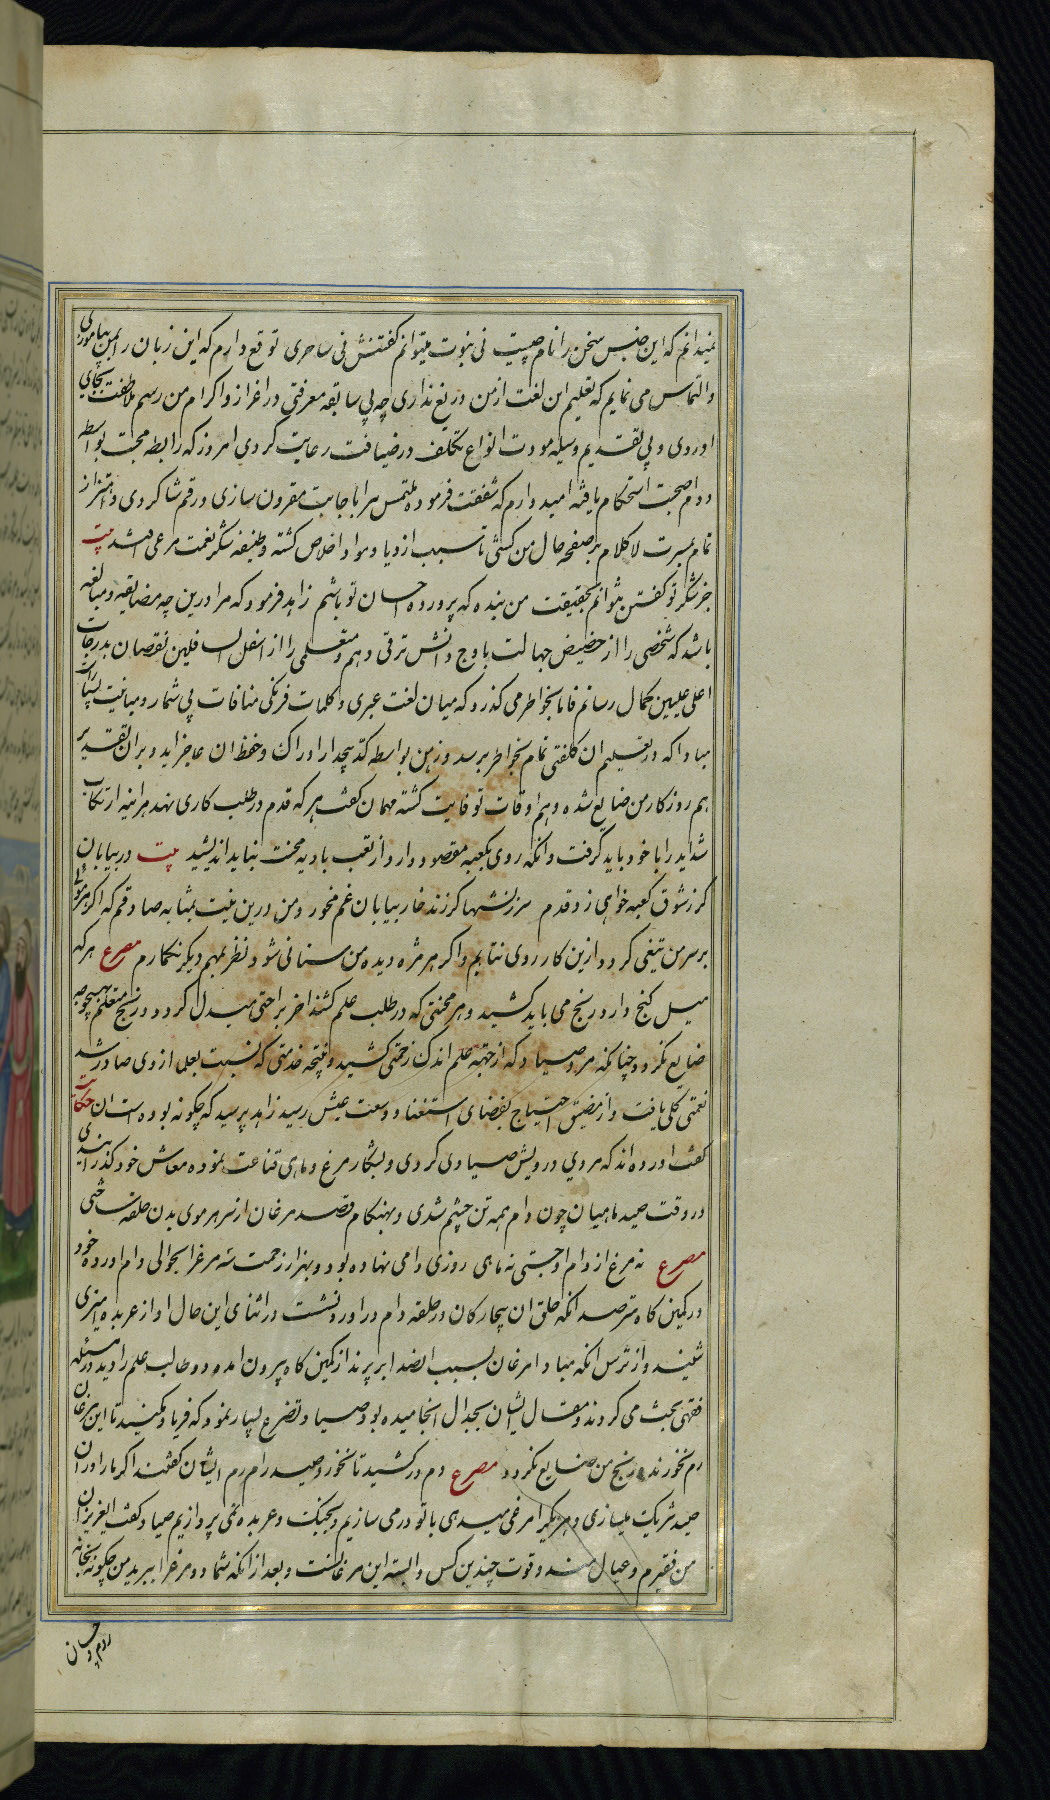 نمیدانم که این جنس سخن را نام چیست نی نبوت میتوانم کفتنش نی ساحری توقع دارم که این زبان را بمن بیاموزی
والتماس می نمایم که تعلیم این لغت از من دریغ نداری چه بی سابقه معرفتی در اعزاز و اکرام من رسم ملاطفت بجای
اوردی و بی تقدیم وسیله مودت انواع تکلف در ضیافت رعایت کردی امروز که رابطه محبت بواسطه
دوام صحبت استحکام یافته امید دارم که شفقت فرموده ملتمس مرا باجابت مقرون سازی و رقم شاکردی و
تمام بر صفحه حال من کشی تا سبب ازدیاد مواد اخلاص کشته وظیفه شکر نعمت مرعی باشد بیت
جز شکر تو کفتن نتوانم بحقیقت من بنده که پرورده احسان تو باشم زاهد فرمود که مرا درین چه مضایقه و مبالغه
باشد که شخصی را از حضیض جهالت باوج دانش ترقی دهم و متعلمی را از اسفل السافلین نقصان بدرجات
اعلی علیین کمال رسانم فاما بخاطر می کذرد که میان لغت عبری و کلمات فرنکی منافات بی شمار و مباینت بسیار است
مبادا که در تعلیم ان کلفتی تمام بخاطر برسد و ذهن بواسطه کد بیحد از ادراک و حفظ ان عاجز اید و بران تقدیر
هم روزکار من ضایع شده و هم اوقات تو فایت کشته مهمان کفت هر که قدم در طلب کاری نهد هر اینه ارتکاب
شداید را با خود باید کرفت وانکه روی بکعبه مقصود دارد از تعب بادیه محنت نباید اندیشید بیت در بیابان
کر ز شوق کعبه خواهی زد قدم سرزنشها کر زند خار بیابان غم مخور و من درین نیت بمثابه صادقم که اکر هر مویی
بر سر من تیغی کردد ازین کار روی نتابم و اکر هر مژه دیده من سنانی شود نظر بمهم دیکر نکمارم مصرع هر که
میل کنج دارد رنج می باید کشید و هر محنتی که در طلب علم کشند اخر براحتی مبدل کردد و رنج متعلم بهیچوجه
ضایع نکردد چنانکه مرد صیاد که از جهة علم اندک زحمتی کشید و نتیجه خدمتی که نسبت بعلما از وی صادر شد
نعمتی کلی یافت و از مضیق احتیاج بفضای استغنا و وسعت عیش رسید زاهد پرسید که چکونه بوده است ان حکایت
کفت اورده اند که مردی درویش صیادی کردی و بشکار مرغ و ماهی قناعت نموده معاش خود کذرانیدی
در وقت صید ماهیان چون دام همه تن چشم شدی و بهنکام قصد مرغان از سر هر موی بدن حلقه ساختی
مصرع نه مرغ از دام او جستی نه ماهی روزی دامی نهاده بود و بهزار زحمت سه مرغ را بحوالی دام اورده خود
در کمین کاه مترصد انکه حلق ان بیچارکان در حلقه دام در اورد نشست در اثنای این حال اواز عربده امیزی
شنید و از ترس انکه مبادا مرغان بسبب ان صدا بر پرند از کمین کاه بیرون امد و دو طالب علم را دید در مسئله
فقهی بحث می کردند و مقال ایشان بجدال انجامیده بود صیاد تضرع بسیار نمود که فریاد مکنید تا این مرغان
رم نخورند و رنج من ضایع نکردد مصرع دم در کشید تا نخورد صید رام رم ایشان کفتند اکر ما را در ان
صید شریک میسازی و هر یک را مرغی میدهی با تو در می سازیم و بجنک و عربده نمی پردازیم صیاد کفت ای عزیزان
من فقیرم و عیال مند و قوت چندین کس وابسته این مرغانست و بعد از انکه شما دو مرغ را ببرید من چکونه بخانه
روم و چسان